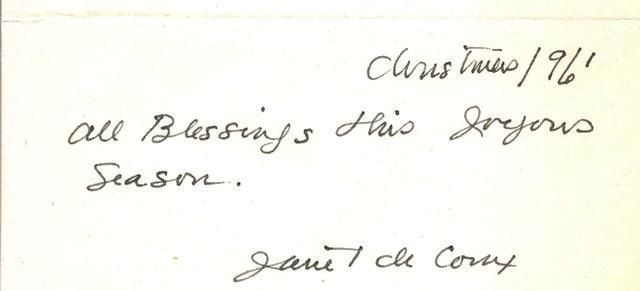 Christmas/961
all Blessings this Joyous
Season.
Janet de Coux